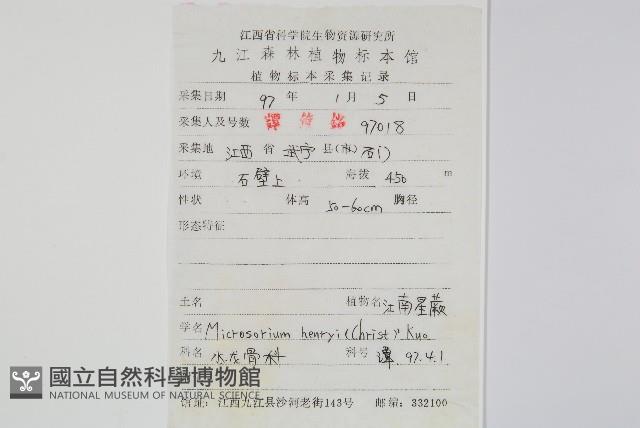 江西省科学院生物资源研究所
九江森林植物标本馆
植物标本采集记录
采集日期 97 年 1 月 5 日
采集人及号数 97018
采集地 江西 省 武宁 县(市) 石门
环境 石壁上 海拔 450 m
性状 体高 50-60cm 胸径
形态特征
土名 植物名 江南星蕨
学名 Microsorium henryi (Christ) Kuo
科名 水龙骨科 科号 谭 97.4.1
國立自然科學博物館
NATIONAL MUSEUM OF NATURAL SCIENCE
馆址:江西九江县沙河老街143号 邮编:332100